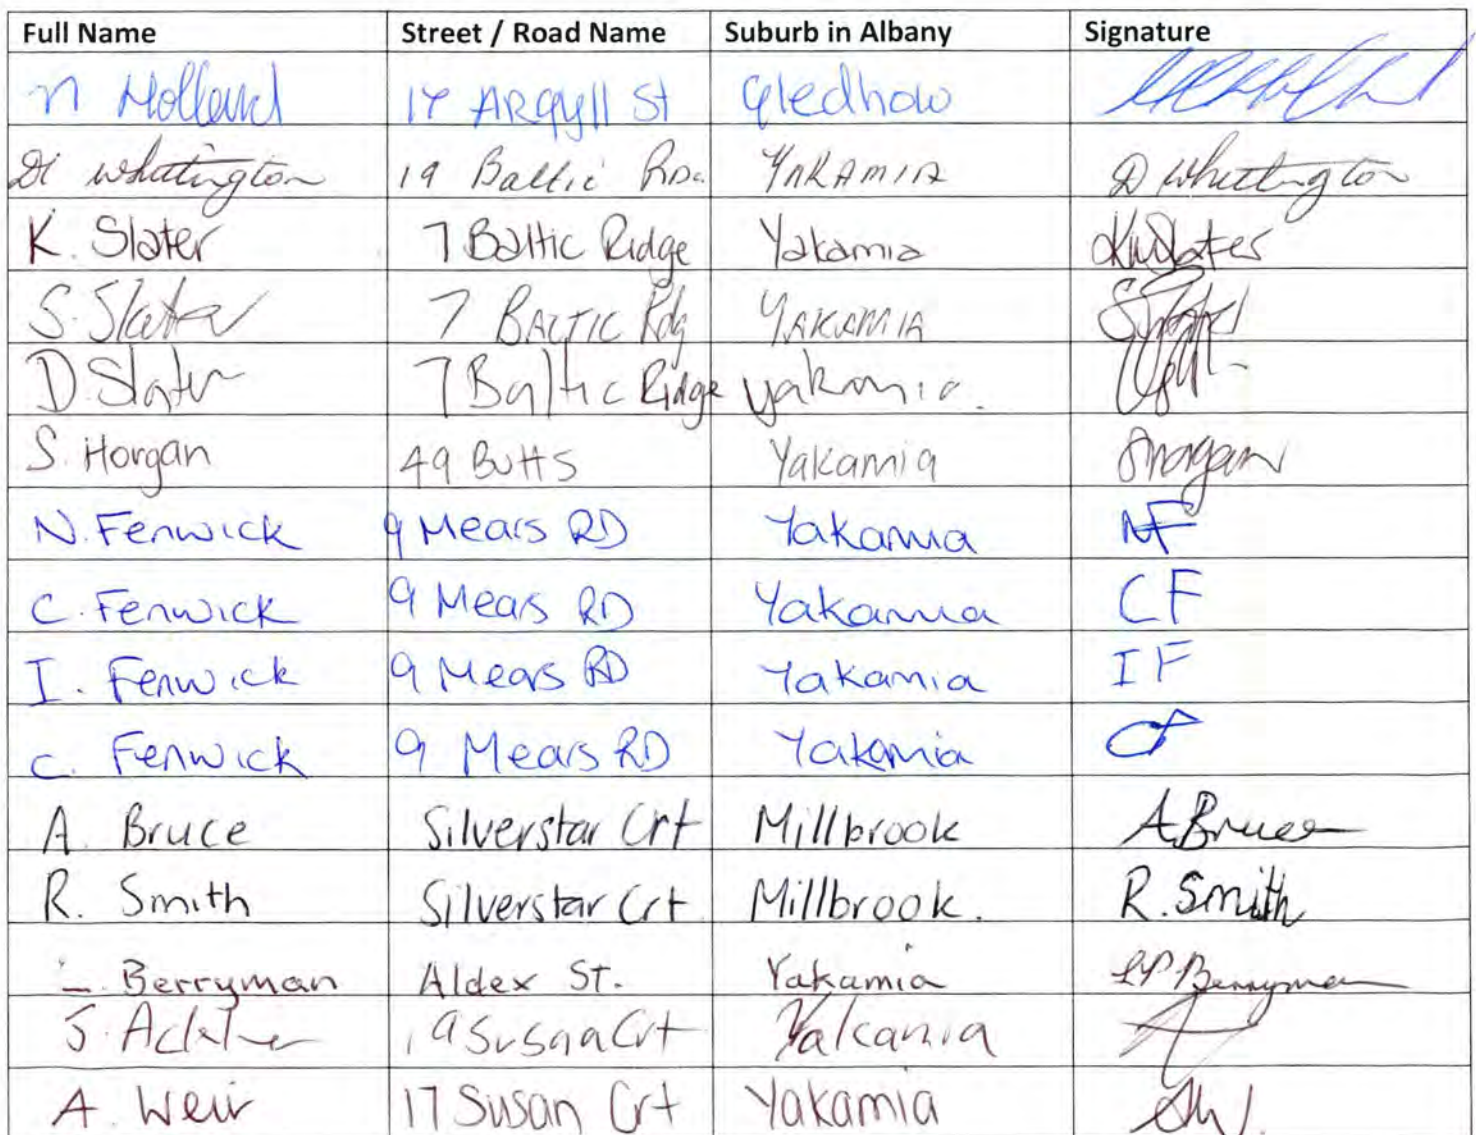 Full Name Street / Road Name Suburb in Albany Signature
n Holland 14 ARgyll St Gledhow
Di Whittington 19 Baltic RDG YAKAMIA D Whittington
K. Slater 7 Baltic Ridge Yakamia KWSlater
S. Slater 7 BALTIC Rdg YAKAMIA
D Slater 7 Baltic Ridge yakamia.
S. Horgan 49 Butts Yakamia SHorgan
N. Fenwick 9 Mears RD Yakamia NF
C. Fenwick 9 Mears RD Yakamia CF
I. Fenwick 9 Mears RD Yakamia IF
C. Fenwick 9 Mears RD Yakamia CF
A. Bruce Silverstar Crt Millbrook A Bruce
R. Smith Silverstar Crt Millbrook. R. Smith
Berryman Aldex St. Yakamia LP Berryman
J. 19 Susan Crt Yakamia
A. Weir 17 Susan Crt Yakamia